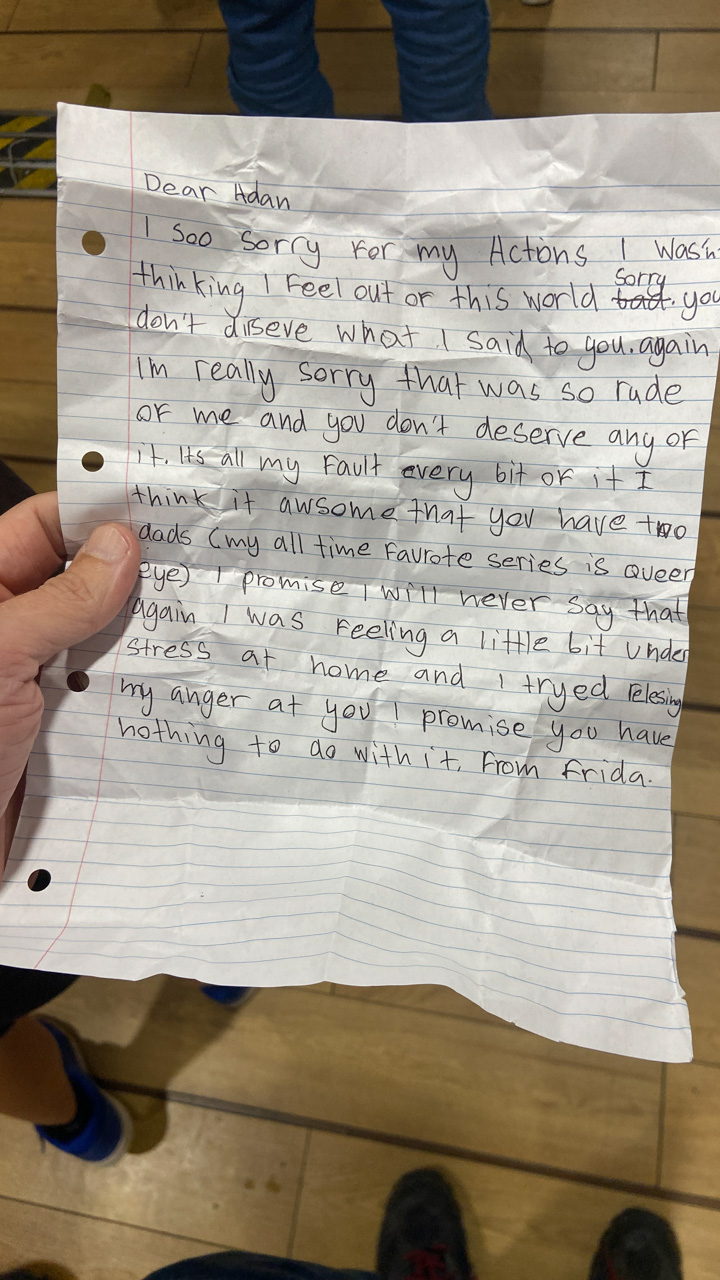 Dear Adan
I Soo Sorry For my Actions I Wasn
thinking I Feel out of this world sorry bad. you
don't diseve what I said to you. again
Im really sorry that was so rude
of me and you don't deserve any of
it. Its all my Fault every bit of it I
think it awsome that you have two
dads (my all time Favrote series is Queer
eye) I promise I will never say that
again I was Feeling a little bit under
stress at home and I tryed relesing
my anger at you I promise you have
nothing to do with it. From Frida.